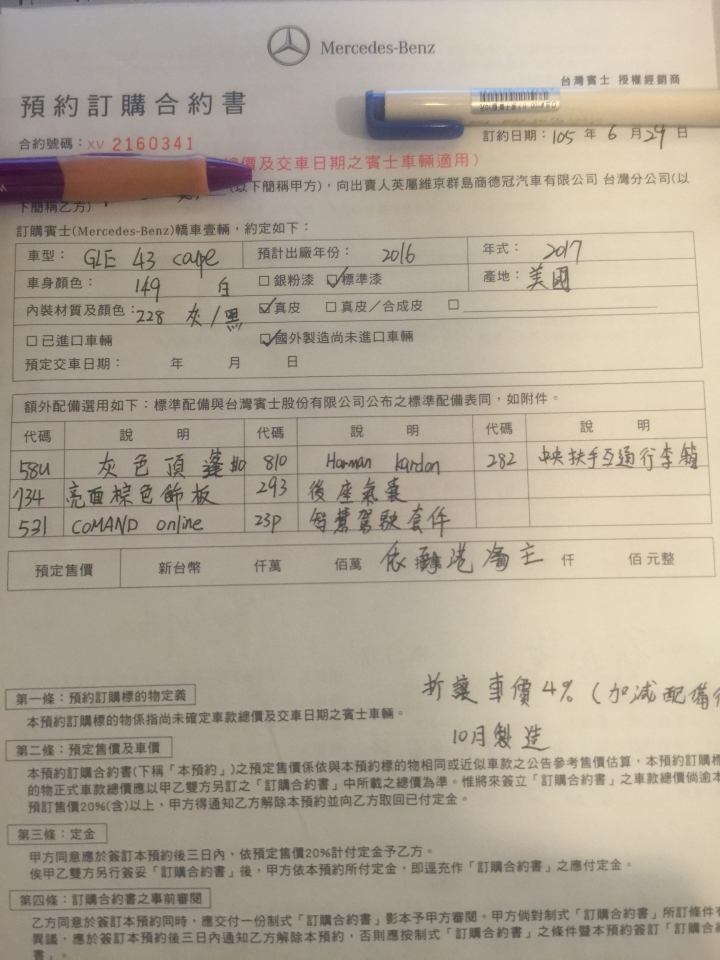 Mercedes-Benz
台灣賓士 授權經銷商
預約訂購合約書
合約號碼：XV 2160341
訂約日期：105 年 6 月 29 日
價及交車日期之賓士車輛適用）
(以下簡稱甲方)，向出賣人英屬維京群島商德冠汽車有限公司 台灣分公司(以
下簡稱乙方)
訂購賓士(Mercedes-Benz)轎車壹輛，約定如下：
車型： GLE 43 coupe 預計出廠年份： 2016 年式： 2017
車身顏色： 149 白 □銀粉漆 ☑標準漆 產地：美國
內裝材質及顏色：228 灰/黑 ☑真皮 □真皮／合成皮 □
□已進口車輛 ☑國外製造尚未進口車輛
預定交車日期： 年 月 日
額外配備選用如下：標準配備與台灣賓士股份有限公司公布之標準配備表同，如附件。
代碼 說 明 代碼 說 明 代碼 說 明
58U 灰色頂蓬 810 Harman kardon 282 中央扶手互通行李箱
734 亮面棕色飾板 293 後座氣囊
531 COMAND online 23P 智慧駕駛套件
預定售價 新台幣 仟萬 佰萬 依到港為主 仟 佰 元整
折讓車價4% (加減配備
第一條：預約訂購標的物定義
本預約訂購標的物係指尚未確定車款總價及交車日期之賓士車輛。
10月製造
第二條：預定售價及車價
本預約訂購合約書(下稱「本預約」)之預定售價係依與本預約標的物相同或近似車款之公告參考售價估算，本預約訂購標
的物正式車款總價應以甲乙雙方另訂之「訂購合約書」中所載之總價為準。惟將來簽立「訂購合約書」之車款總價倘逾本
預訂售價20%(含)以上，甲方得通知乙方解除本預約並向乙方取回已付定金。
第三條：定金
甲方同意應於簽訂本預約後三日內，依預定售價20%計付定金予乙方。
俟甲乙雙方另行簽妥「訂購合約書」後，甲方依本預約所付定金，即逕充作「訂購合約書」之應付定金。
第四條：訂購合約書之事前審閱
乙方同意於簽訂本預約同時，應交付一份制式「訂購合約書」影本予甲方審閱。甲方倘對制式「訂購合約書」所訂條件有
異議，應於簽訂本預約後三日內通知乙方解除本預約，否則應按制式「訂購合約書」之條件暨本預約簽訂「訂購合約
書」。